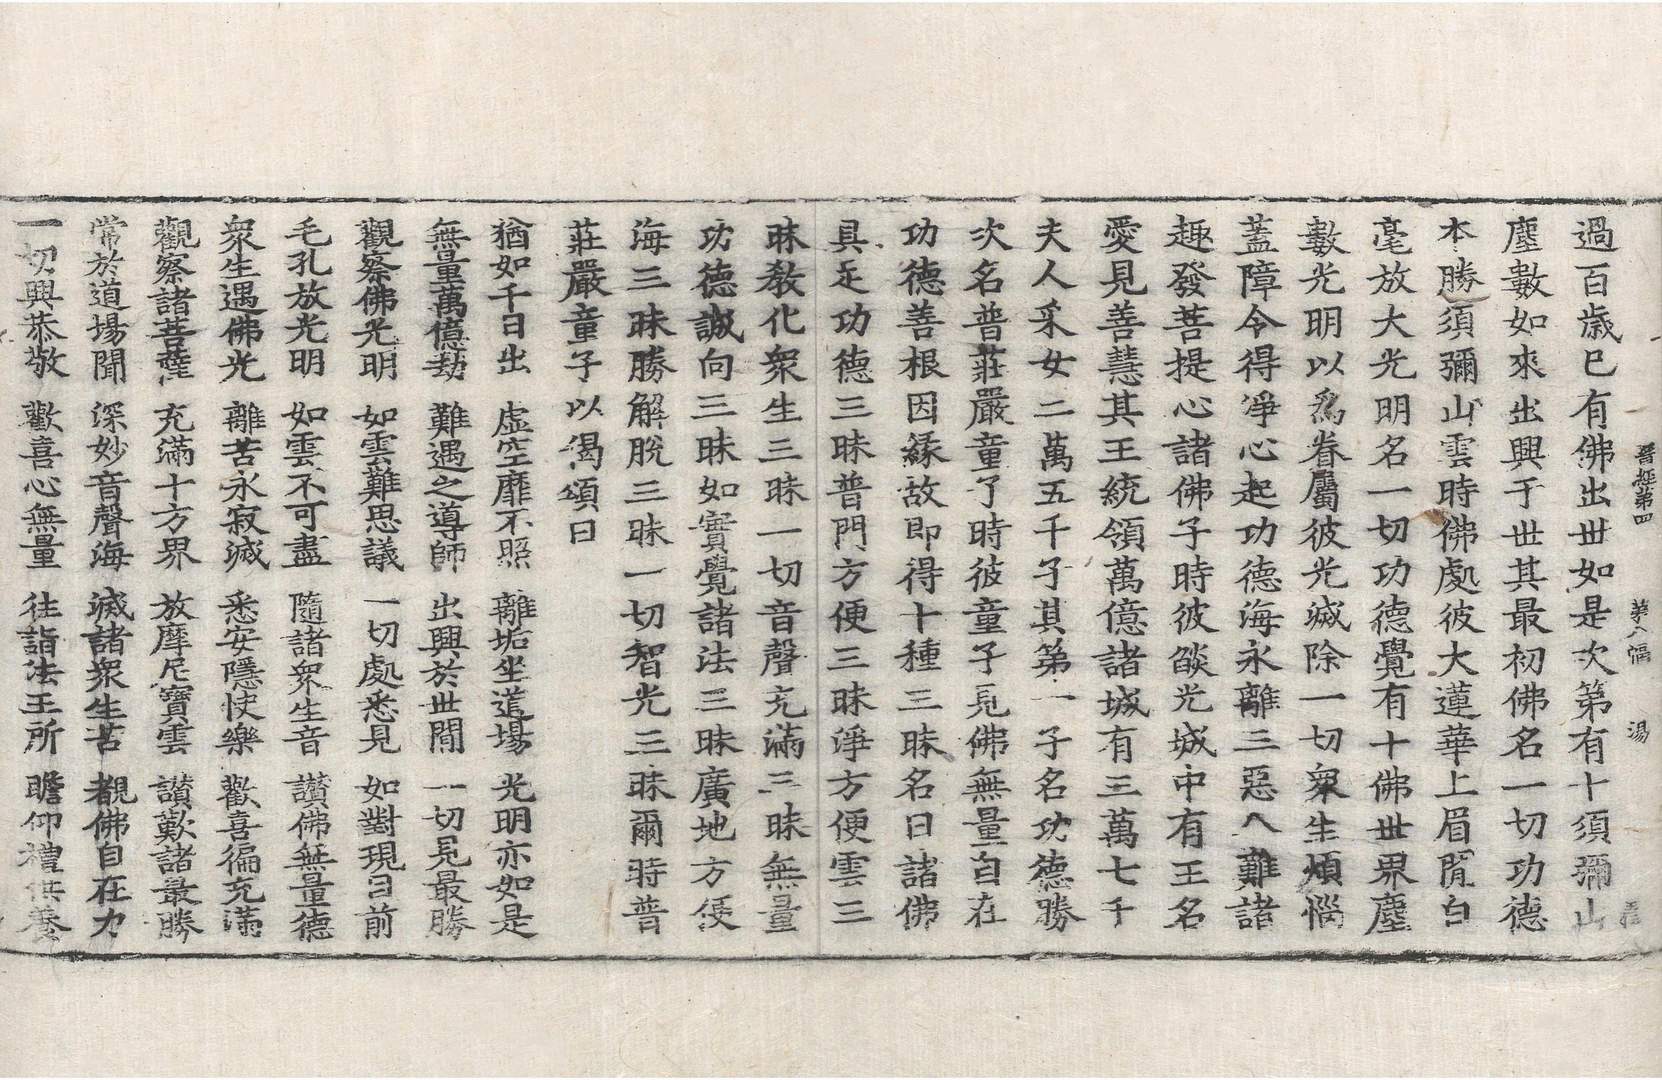 晋經第四 第八幅 湯
過百歲已有佛出世如是次第有十須彌山
塵數如來出興于世其最初佛名一切功德
本勝須彌山雲時佛處彼大蓮華上眉間白
毫放大光明名一切功德覺有十佛世界塵
數光明以爲眷屬彼光滅除一切衆生煩惱
蓋障令得淨心起功德海永離三惡八難諸
趣發菩提心諸佛子時彼燄光城中有王名
愛見善慧其王統領萬億諸城有三萬七千
夫人采女二萬五千子其第一子名功德勝
次名普莊嚴童子時彼童子見佛無量自在
功德善根因緣故即得十種三昧名曰諸佛
具足功德三昧普門方便三昧淨方便雲三
昧敎化衆生三昧一切音聲充滿三昧無量
功德誠向三昧如實覺諸法三昧廣地方便
海三昧勝解脫三昧一切智光三昧爾時普
莊嚴童子以偈頌曰
猶如千日出 虛空靡不照 離垢坐道場 光明亦如是
無量萬億劫 難遇之導師 出興於世間 一切見最勝
觀察佛光明 如雲難思議 一切處悉見 如對現目前
毛孔放光明 如雲不可盡 隨諸衆生音 讃佛無量德
衆生遇佛光 離苦永寂滅 悉安隱快樂 歡喜徧充滿
觀察諸菩薩 充滿十方界 放摩尼寶雲 讃歎諸最勝
常於道場聞 深妙音聲海 滅諸衆生苦 覩佛自在力
一切興恭敬 歡喜心無量 往詣法王所 瞻仰禮供養